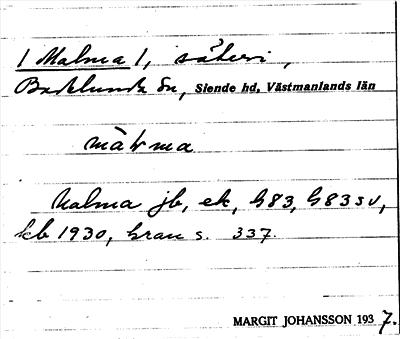 / Malma /, säteri,
Badelunda sn, Siende hd, Västmanlands län
màlma
Malma jb, ek, G83, G83 sv,
kb 1930, Grau s. 337.
MARGIT JOHANSSON 1937.